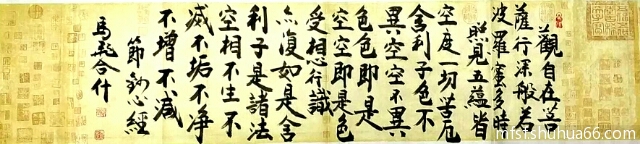 觀自在菩
薩行深般若
波羅蜜多時
照見五蘊皆
空度一切苦厄
舍利子色不
異空空不異
色色即是
空空即是色
受想行識
亦復如是舍
利子是諸法
空相不生不
滅不垢不净
不增不減
節鈔心經
馬飛合什
mfsfshuhua66.com